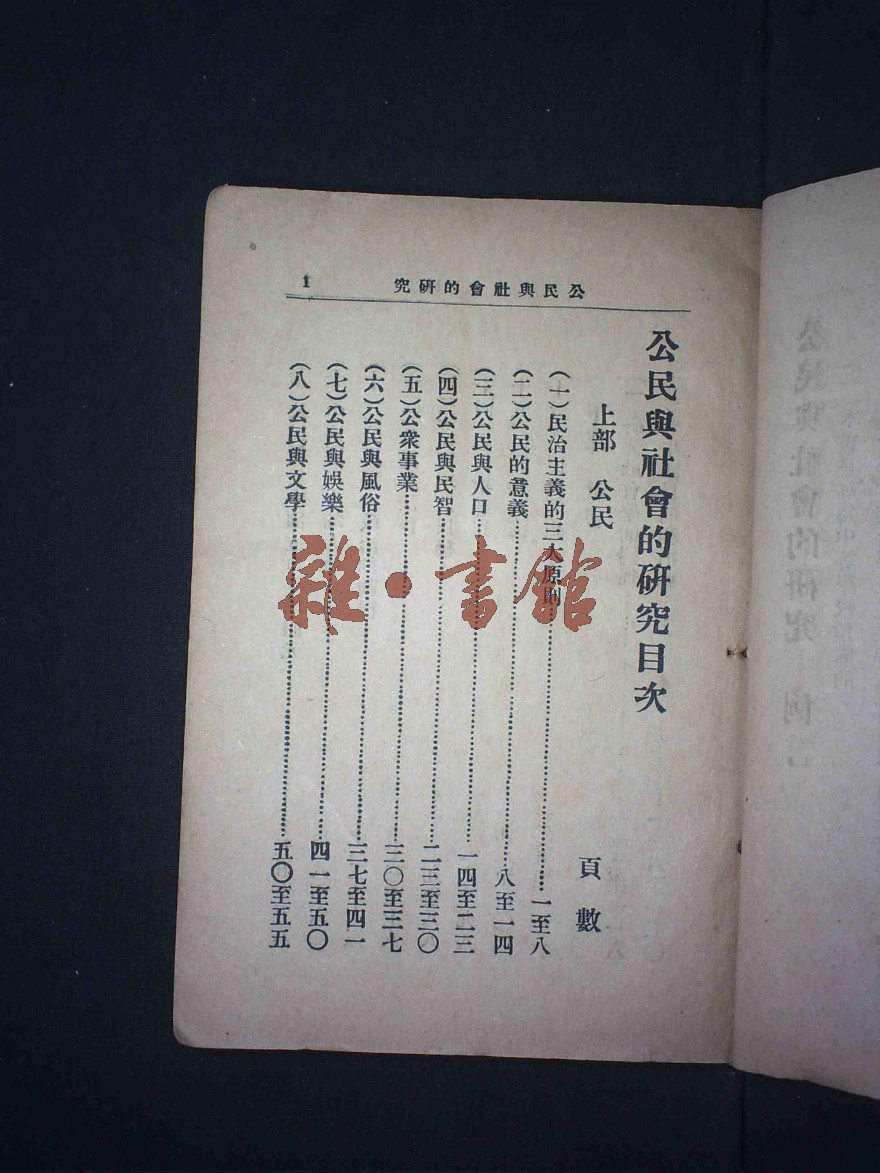 公民與社會的研究
1
公民與社會的研究目次
上部 公民
頁數
(一)民治主義的三大原則……一至八
(二)公民的意義……八至一四
(三)公民與人口……一四至二三
(四)公民與民智……二三至三〇
(五)公衆事業……三〇至三七
(六)公民與風俗……三七至四一
(七)公民與娛樂……四一至五〇
(八)公民與文學……五〇至五五
雜·書館